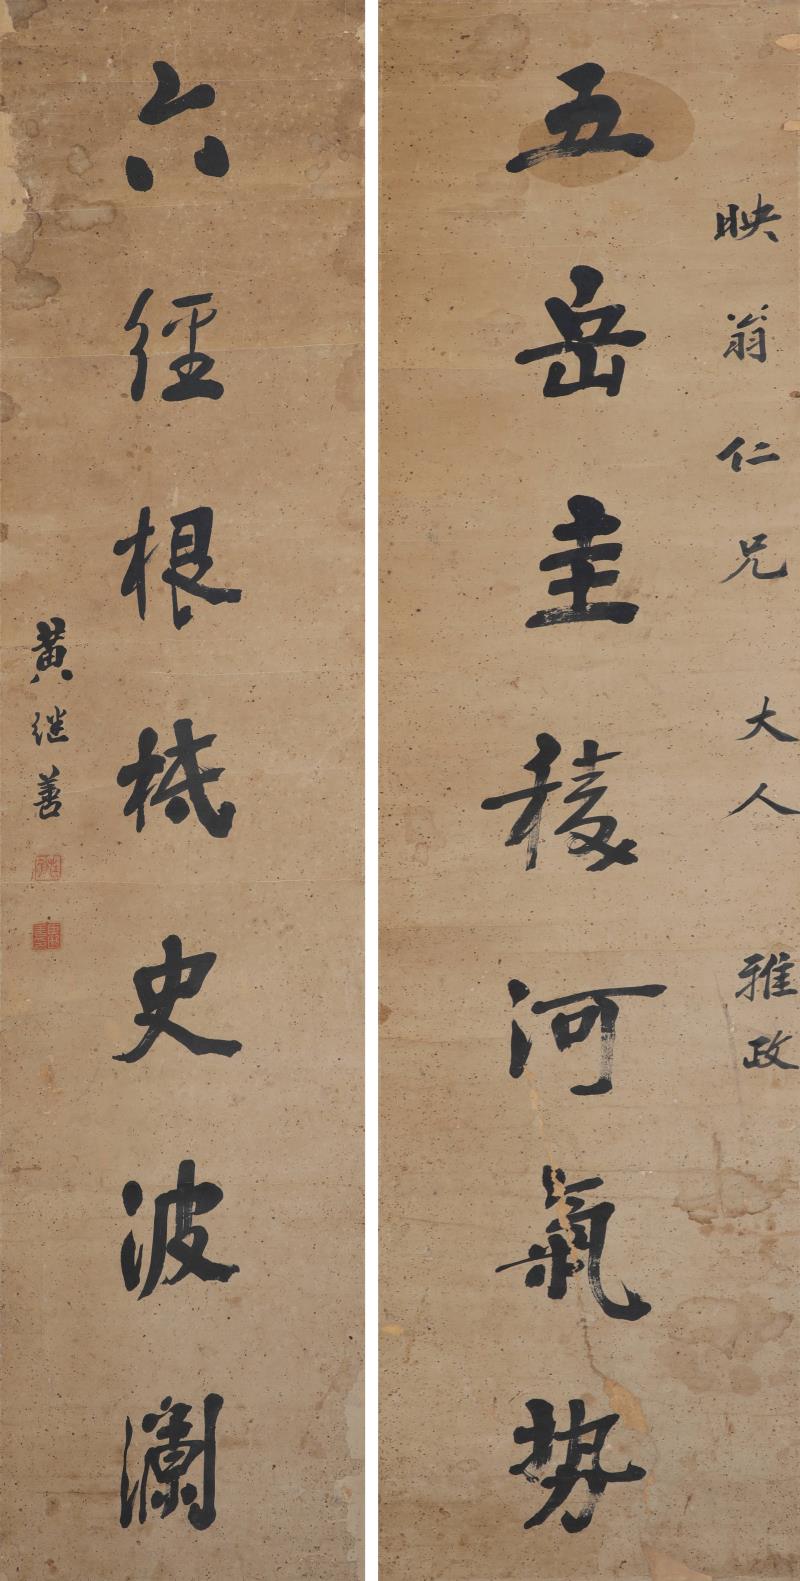 映翁仁兄大人雅政
五岳圭稜河氣势
六經根柢史波瀾
黄继善